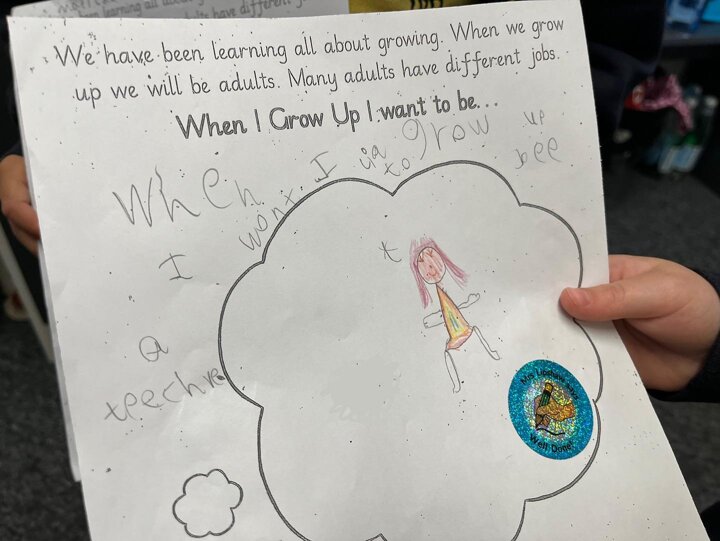 We have been learning all about growing. When we grow
up we will be adults. Many adults have different jobs.
When I Grow Up I want to be...
When I to grow up
I wont bee
a
teechre
t
Well Done!